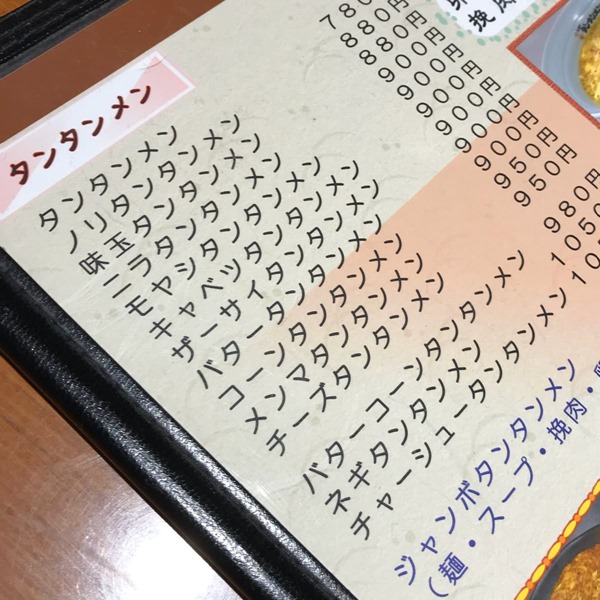 タンタンメン
タンタンメン
ノリタンタンメン
味玉タンタンメン
ニラタンタンメン
モヤシタンタンメン
キャベツタンタンメン
ザーサイタンタンメン
バタータンタンメン
コーンタンタンメン
メンマタンタンメン
チーズタンタンメン
バターコーンタンタンメン
ネギタンタンメン
チャーシュータンタンメン
780
880円
880円
900円
900円
900円
900円
900円
950円
950円
980円
1050
10
ジャンボタンタンメン
(麺・スープ・挽肉・
挽肉